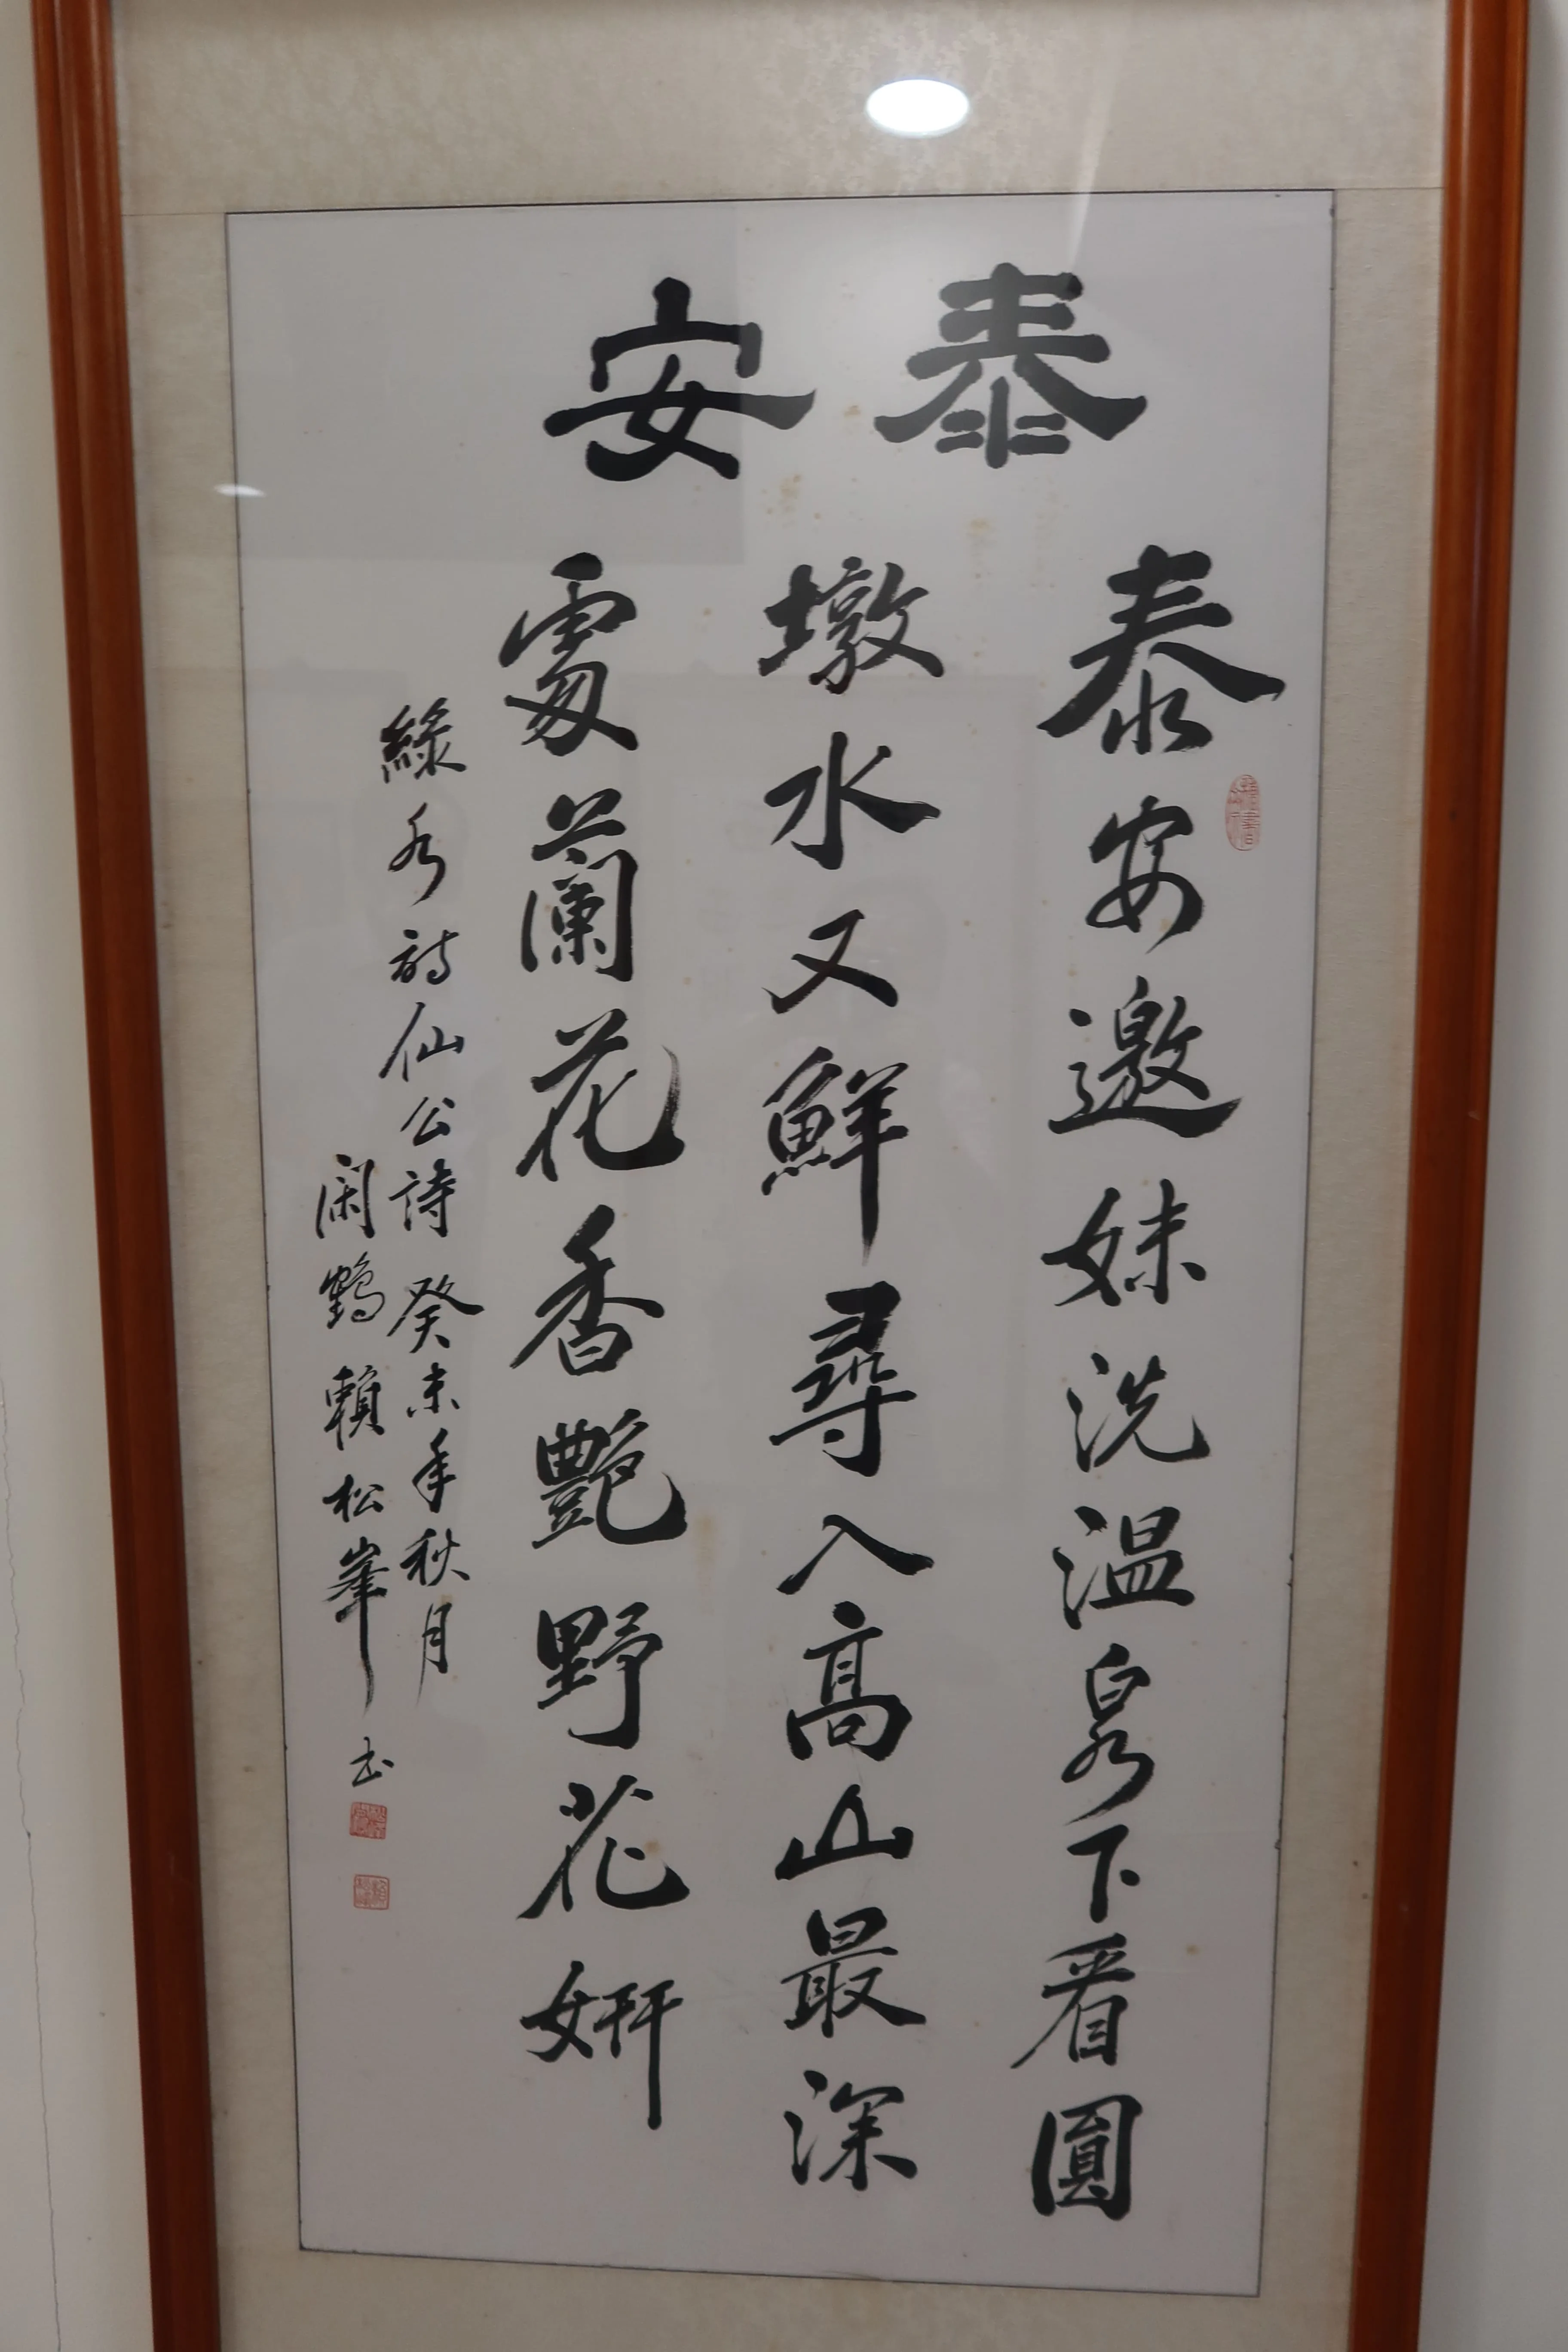 泰安
泰安邀妹洗温泉下看圓
墩水又鮮尋入高山最深
處蘭花香艷野花妍
綠水詩仙公詩 癸未年秋月
閑鶴 賴松峯 书